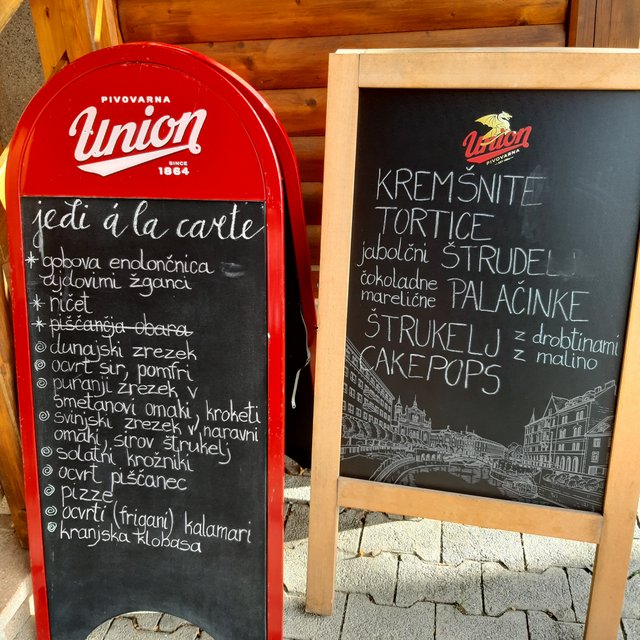 PIVOVARNA
Union
SINCE
1864
jedi á la carte
* gobova enolončnica
ajdovimi žganci
* ričet
* piščančja obara
dunajski zrezek
ocvrt sir, pomfri
puranji zrezek v
smetanovi omaki, kroketi
svinjski zrezek v naravni
omaki, sirov štrukelj
solatni krožniki
ocvrt piščanec
pizze
ocvrti (frigani) kalamari
kranjska klobasa
Union
PIVOVARNA
KREMŠNITE
TORTICE
jabolčni ŠTRUDEL
čokoladne
marelične PALAČINKE
ŠTRUKELJ z drobtinami
z malino
CAKEPOPS